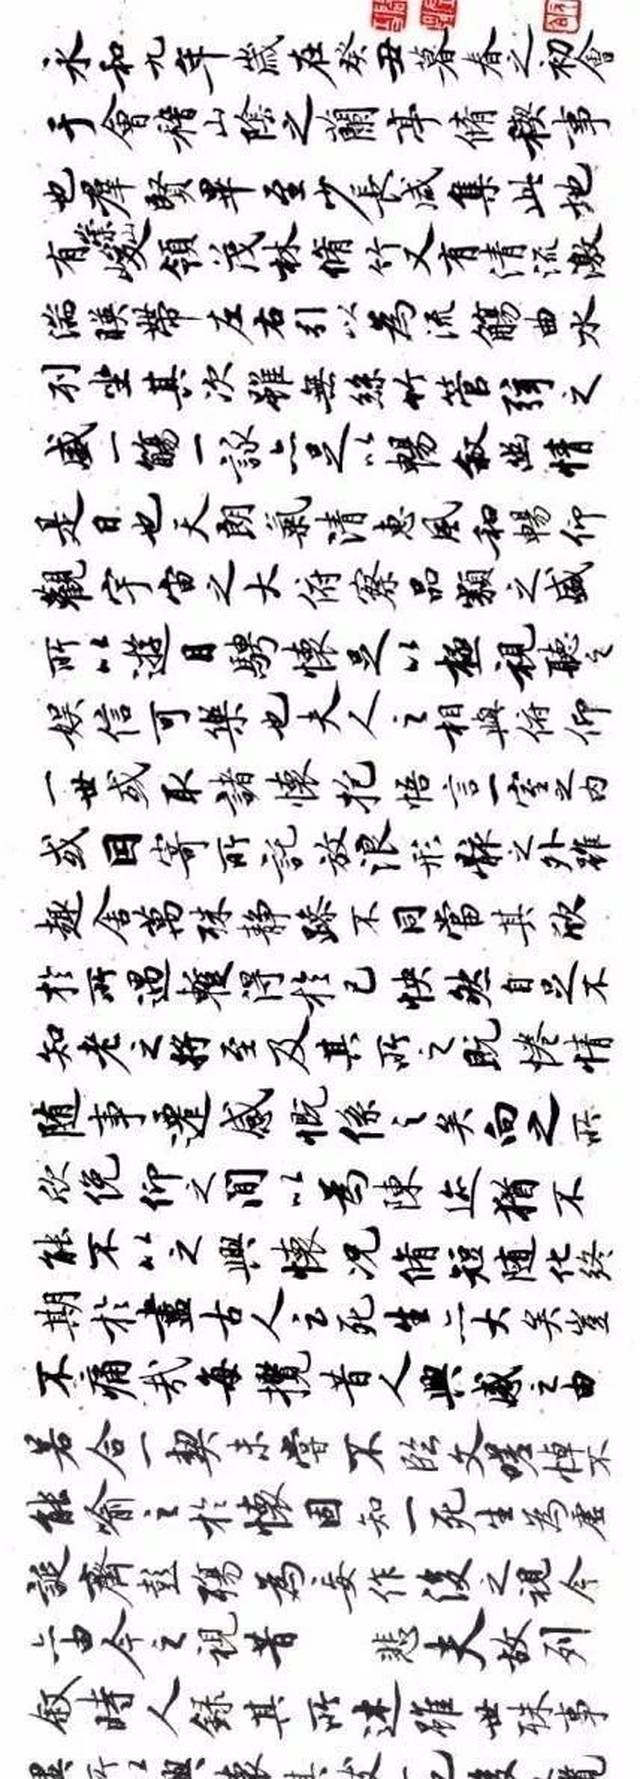 永和九年歲在癸丑暮春之初會
于會稽山陰之蘭亭脩稧事
也羣賢畢至少長咸集此地
有崇山峻領茂林脩竹又有清流激
湍暎帶左右引以為流觴曲水
列坐其次雖無絲竹管弦之
盛一觴一詠亦足以暢敘幽情
是日也天朗氣清惠風和暢仰
觀宇宙之大俯察品類之盛
所以遊目騁懷足以極視聽之
娱信可樂也夫人之相與俯仰
一世或取諸懷抱悟言一室之内
或因寄所託放浪形骸之外雖
趣舍萬殊静躁不同當其欣
於所遇暫得於己怏然自足不
知老之將至及其所之既惓情
随事遷感慨係之矣向之所
欣俛仰之間以為陳迹猶不
能不以之興懷況脩短随化終
期於盡古人云死生亦大矣豈
不痛哉每攬昔人興感之由
若合一契未嘗不臨文嗟悼不
能喻之於懷固知一死生為虚
誕齊彭殤為妄作後之視今
亦由今之視昔 悲夫故列
敘時人錄其所述雖世殊事